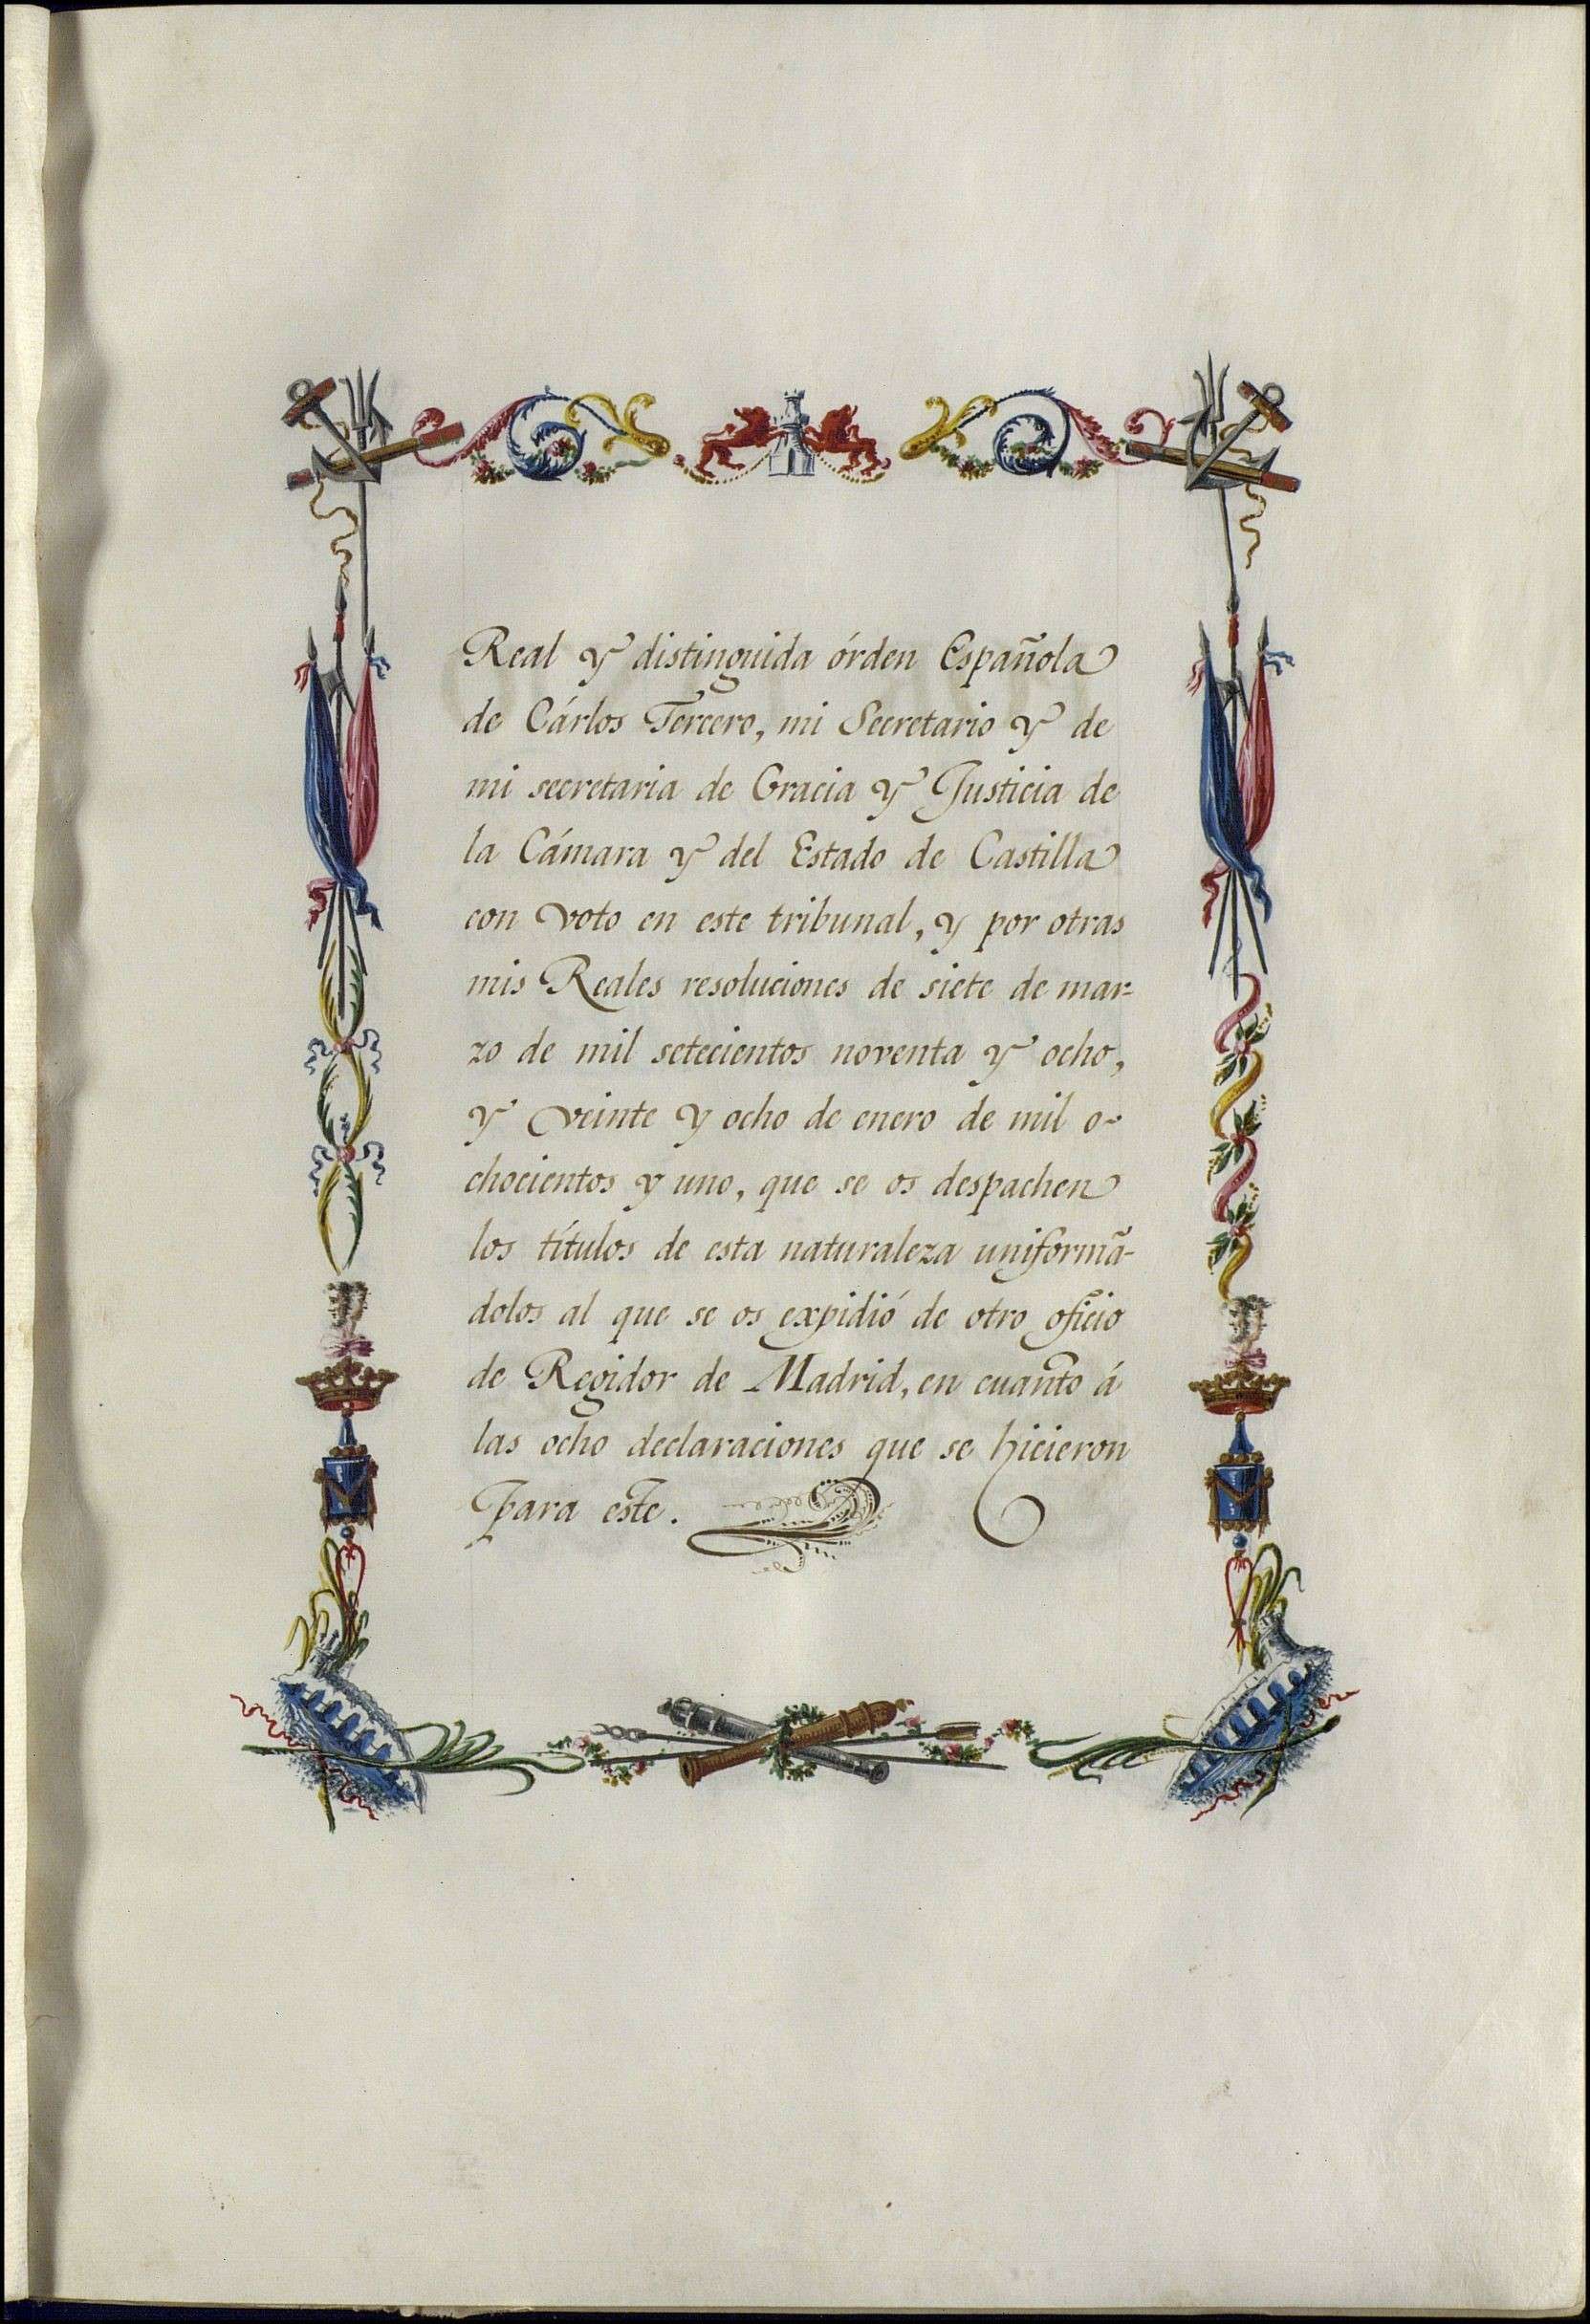 Real y distinguida órden Española
de Cárlos Tercero, mi Secretario y de
mi secretaria de Gracia y Justicia de
la Cámara y del Estado de Castilla
con voto en este tribunal, y por otras
mis Reales resoluciones de siete de mar=
zo de mil setecientos noventa y ocho,
y veinte y ocho de enero de mil o-
chocientos y uno, que se os despachen
los títulos de esta naturaleza uniformā-
dolos al que se os expidió de otro oficio
de Regidor de Madrid, en cuanto á
las ocho declaraciones que se hicieron
para este.